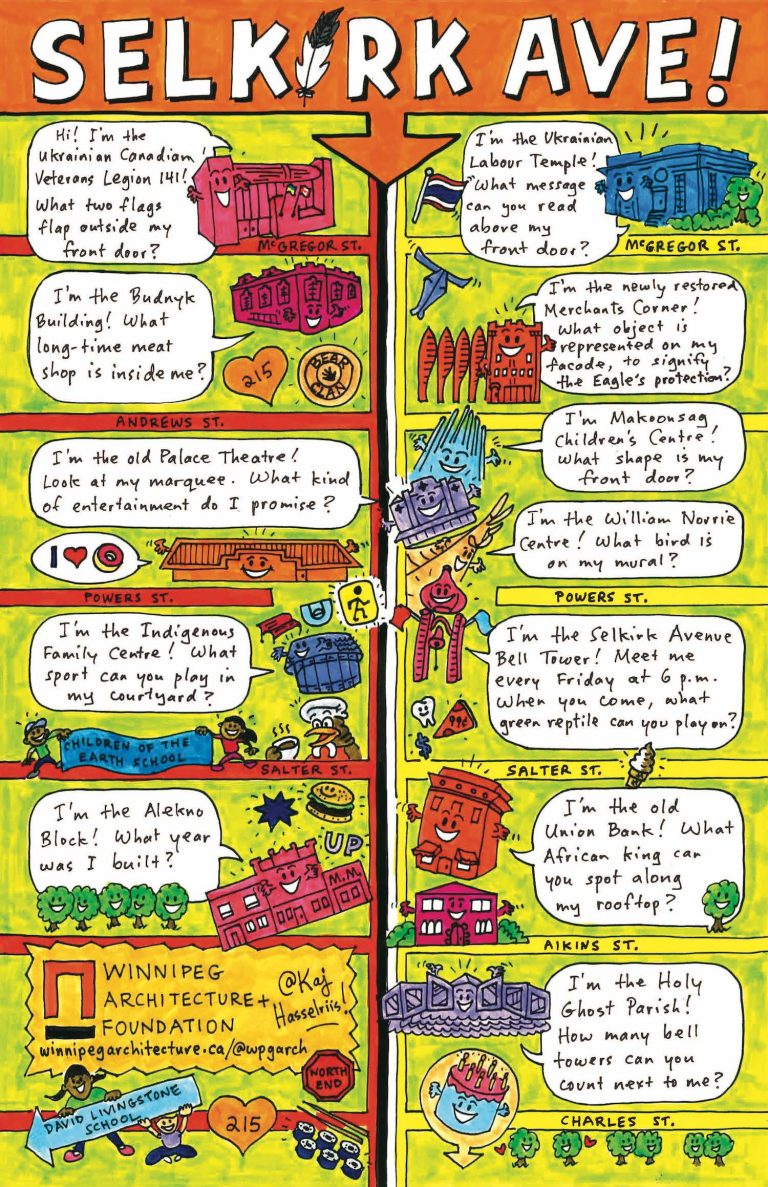 SELKIRK AVE!
Hi! I'm the
Ukrainian Canadian
Veterans Legion 141!
What two flags
flap outside my
front door?
McGREGOR ST.
I'm the Budnyk
Building! What
long-time meat
shop is inside me?
215
BEAR
CLAN
ANDREWS ST.
I'm the old Palace Theatre!
Look at my marquee. What kind
of entertainment do I promise?
I
POWERS ST.
I'm the Indigenous
Family Centre! What
sport can you play in
my courtyard?
CHILDREN OF THE
EARTH SCHOOL
SALTER ST.
I'm the Alekno
Block! What year
was I built?
UP
M.M.
WINNIPEG
ARCHITECTURE+
FOUNDATION
@Kaj
Hasselriis!
winnipegarchitecture.ca/@wpgarch
NORTH
END
DAVID LIVINGSTONE
SCHOOL
215
I'm the Ukrainian
Labour Temple!
What message
can you read
above my
front door?
McGREGOR ST.
I'm the newly restored
Merchants Corner!
What object is
represented on my
facade, to signify
the Eagle's protection?
I'm Makoonsag
Children's Centre!
What shape is my
front door?
I'm the William Norrie
Centre! What bird is
on my mural?
POWERS ST.
I'm the Selkirk Avenue
Bell Tower! Meet me
every Friday at 6 p.m.
When you come, what
green reptile can you play on?
99¢
$
SALTER ST.
I'm the old
Union Bank! What
African king can
you spot along
my rooftop?
AIKINS ST.
I'm the Holy
Ghost Parish!
How many bell
towers can you
count next to me?
CHARLES ST.